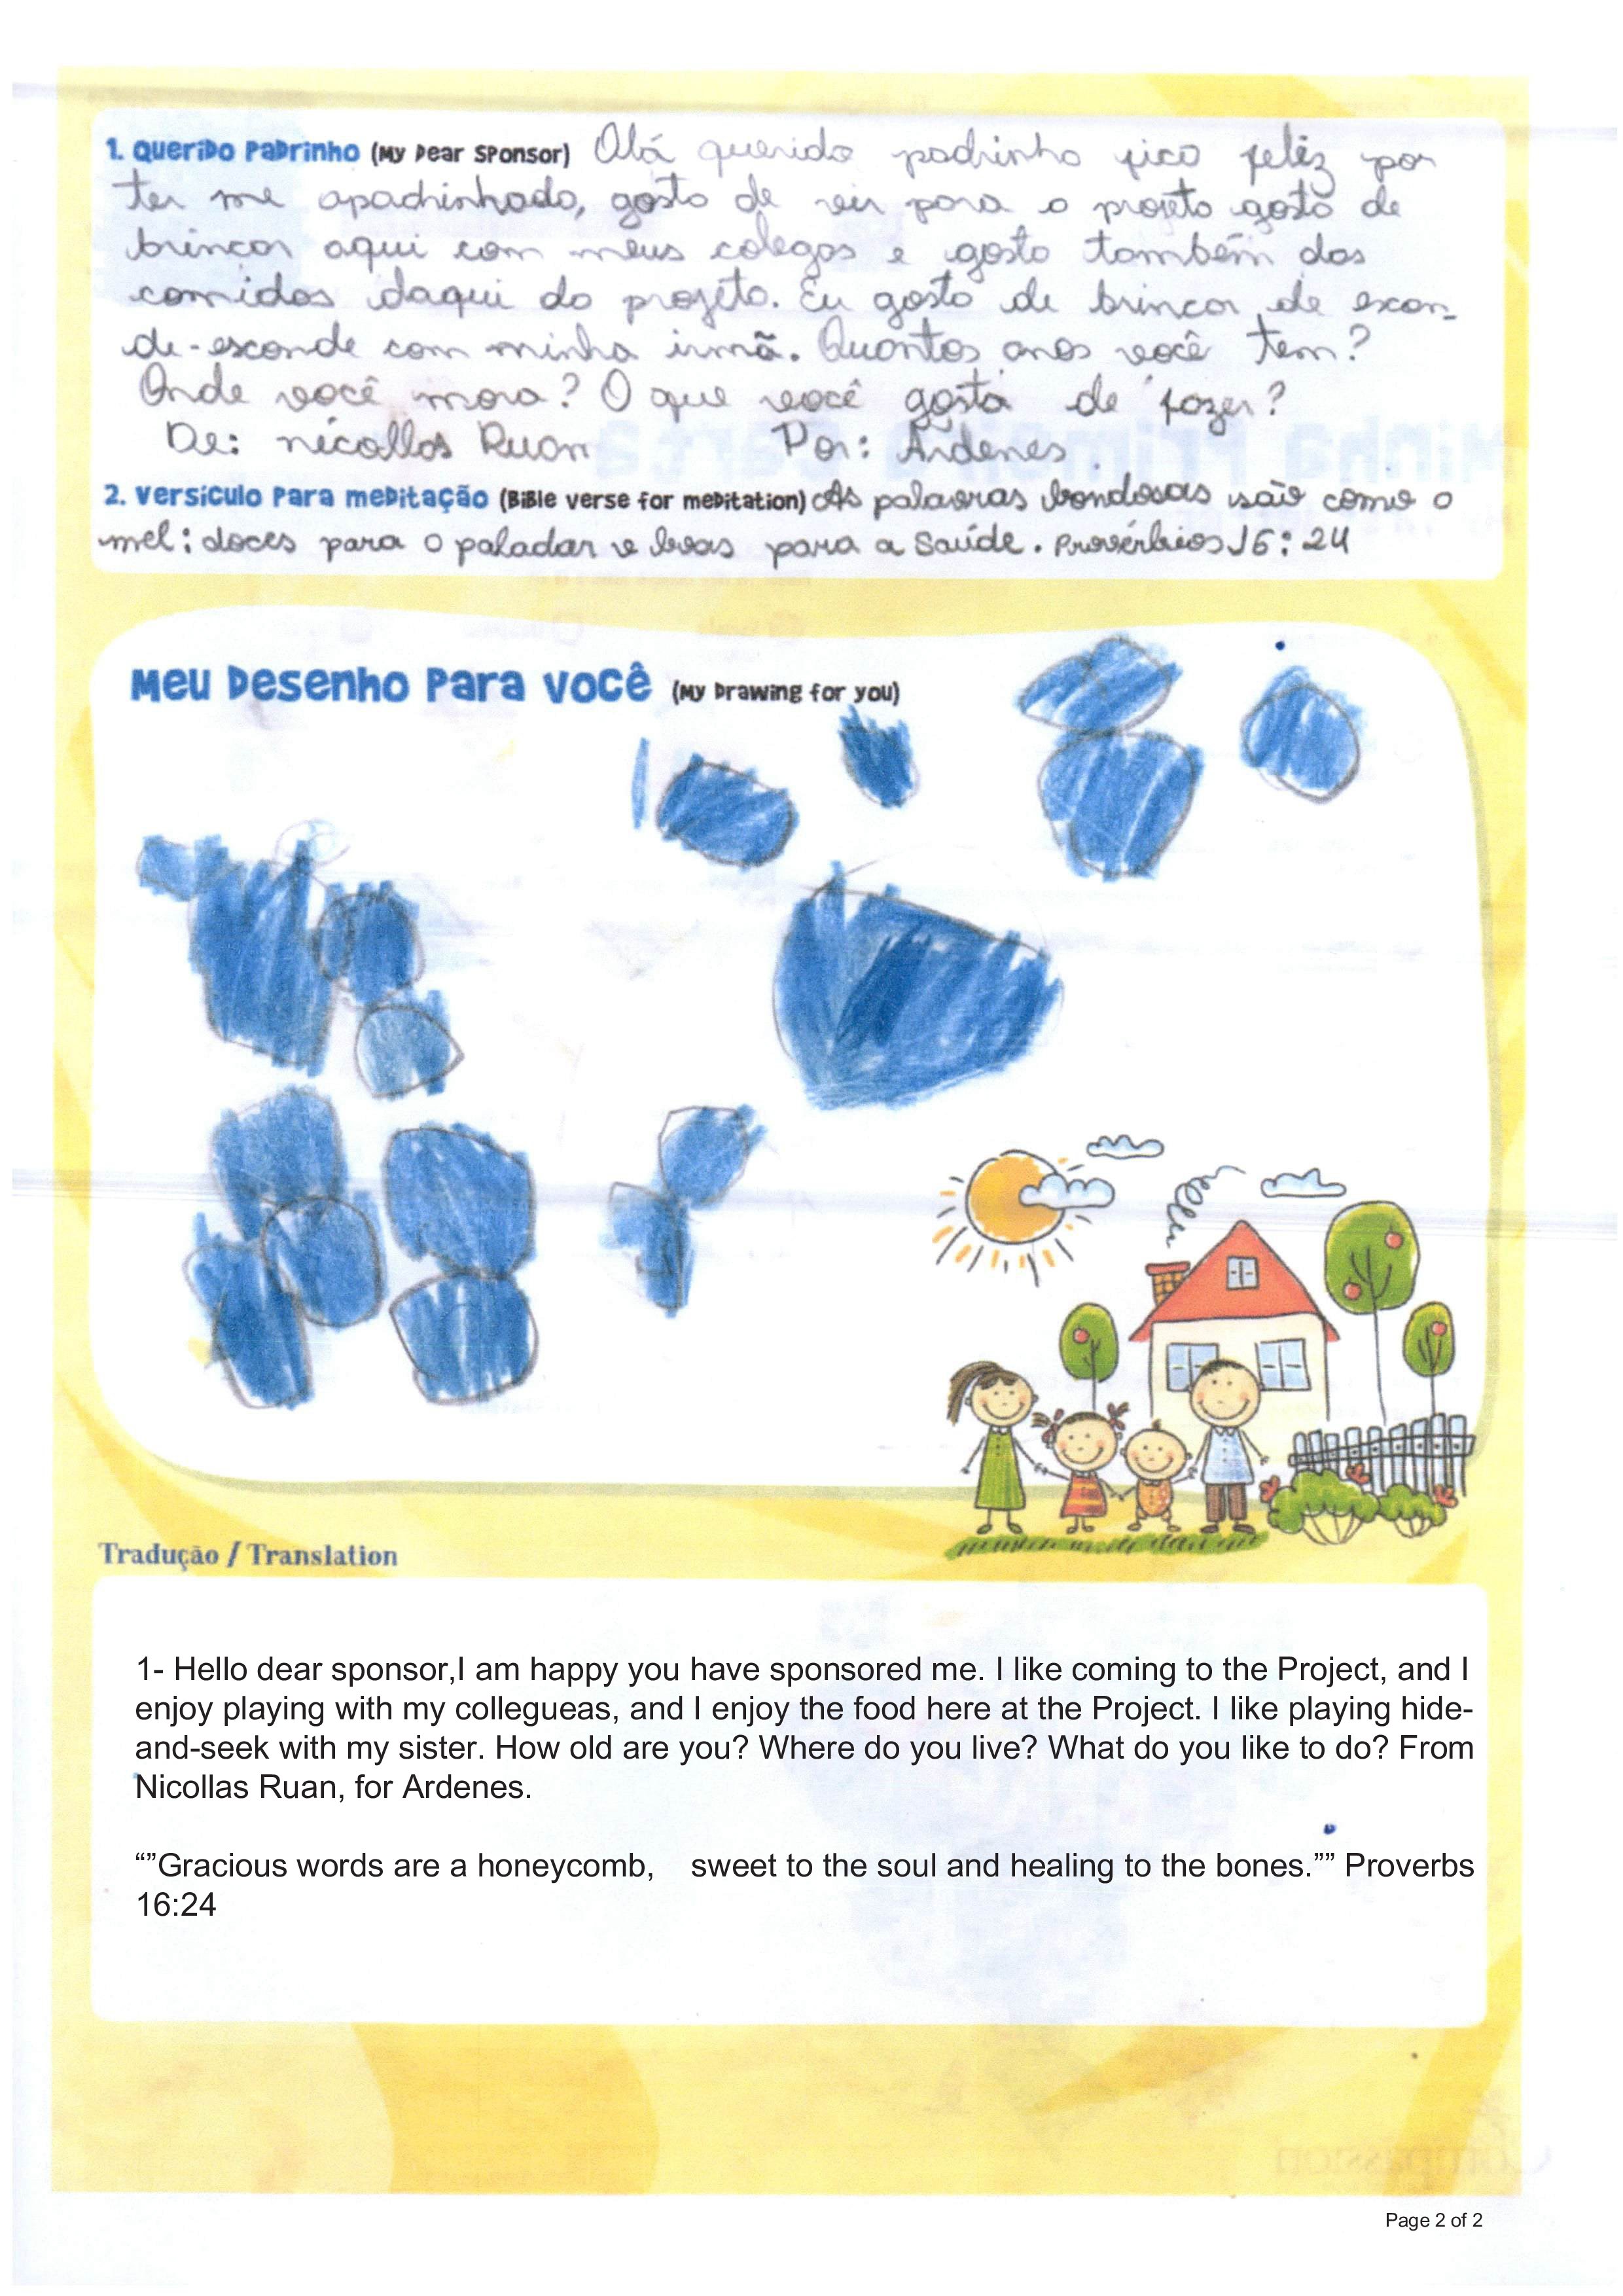 1. Querido Padrinho (My Dear Sponsor) Olá querido padrinho fico feliz por
ter me apadrinhado, gosto de vir para o projeto gosto de
brincar aqui com meus colegas e gosto também das
comidas daqui do projeto. Eu gosto de brincar de escon-
de-esconde com minha irmã. Quantos anos você tem?
Onde você mora? O que você gosta de fazer?
De: nicollas Ruan Por: Ardenes.
2. Versículo para meditação (Bible verse for meditation) As palavras bondosas são como o
mel: doces para o paladar e boas para a Saúde. Provérbios 16:24
Meu Desenho Para você (My Drawing for you)
Tradução / Translation
1- Hello dear sponsor,I am happy you have sponsored me. I like coming to the Project, and I
enjoy playing with my collegueas, and I enjoy the food here at the Project. I like playing hide-
and-seek with my sister. How old are you? Where do you live? What do you like to do? From
Nicollas Ruan, for Ardenes.
“”Gracious words are a honeycomb, sweet to the soul and healing to the bones.”” Proverbs
16:24
Page 2 of 2